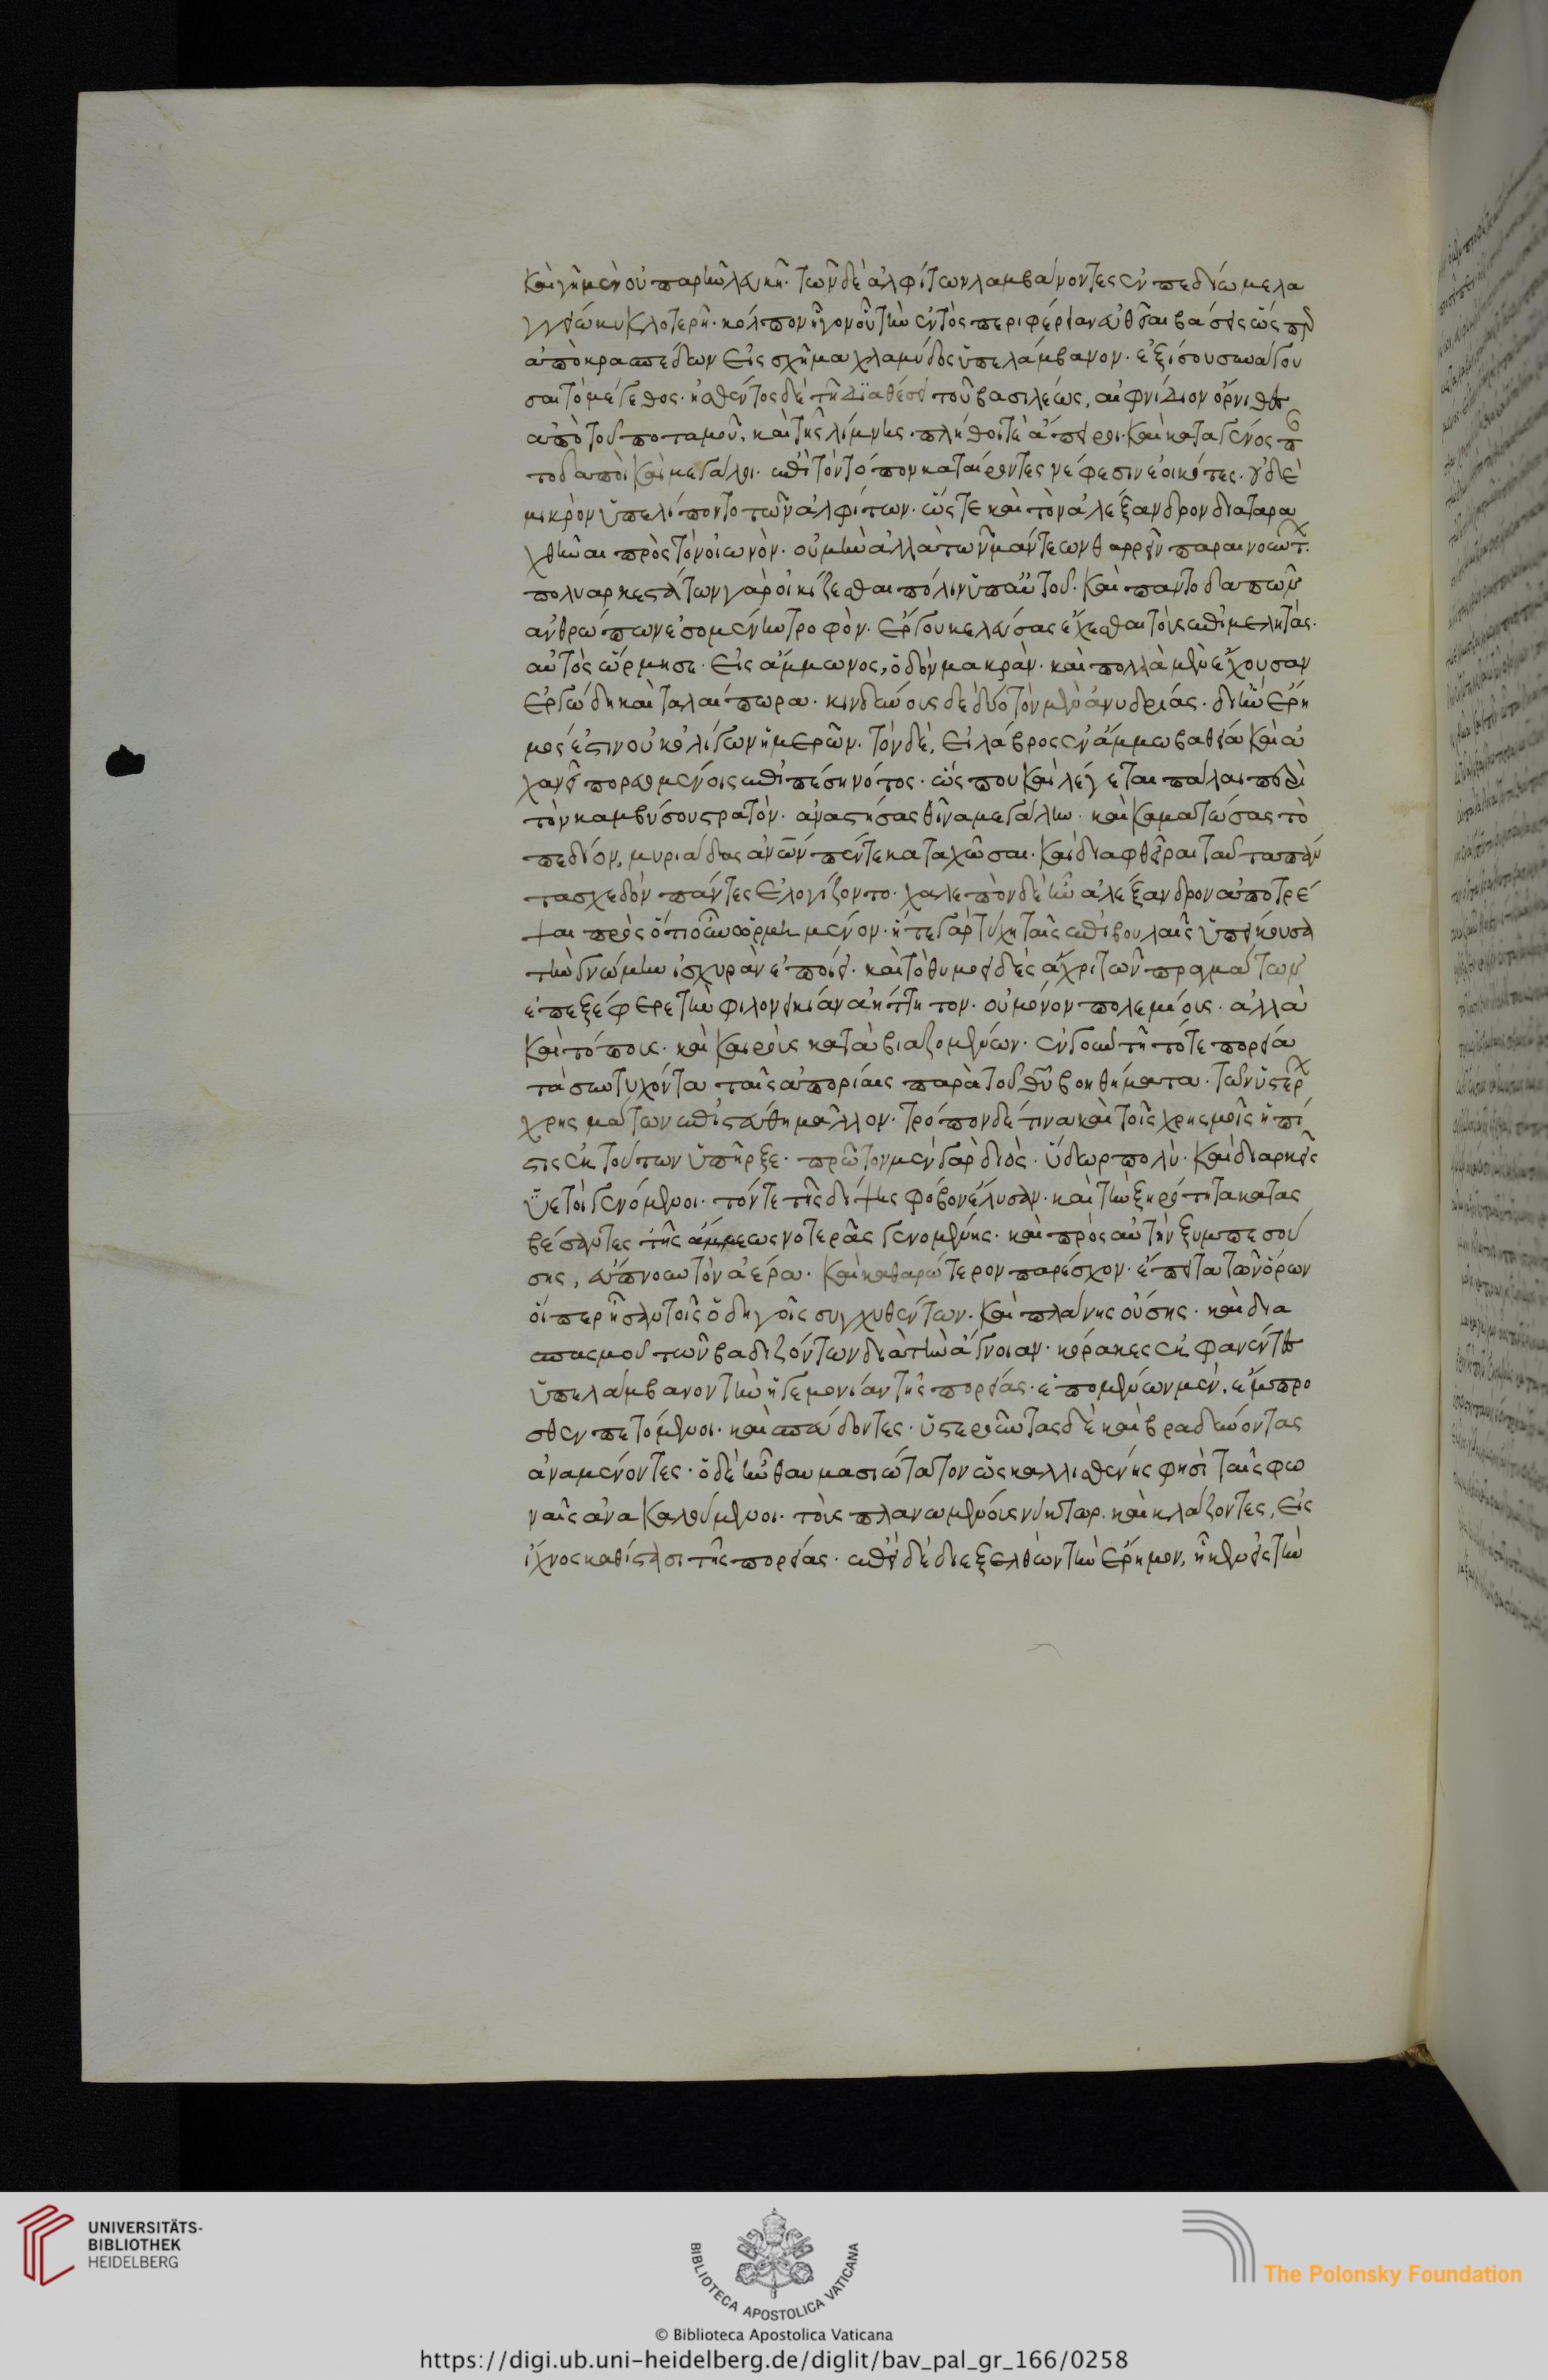 καὶ γῆ μὲν οὐ παρῆν λευκή· τῶν δὲ ἀλφίτων λαμβάνοντες ἐν πεδίω μελα
γγείω κυκλοτερῆ· κόλπον ἦγον οὗ τὴν ἐντὸς περιφέρειαν εὐθεῖαι βάσεις ὥσπερ
ἀπὸ κρασπέδων εἰς σχῆμα χλαμύδος ὑπελάμβανον· ἐξ ἴσου συνάγου
σαι τὸ μέγεθος· ἡσθέντος δὲ τῆ διαθέσει τοῦ βασιλέως, αἰφνίδιον ὄρνιθες
ἀπὸ τοῦ ποταμοῦ, καὶ τῆς λίμνης· πλήθει τὲ ἄπειροι· καὶ κατὰ γένος παν
τοδαποὶ καὶ μεγάλοι· ἐπὶ τὸν τόπον καταίροντες νέφεσιν ἐοικότες· οὐδὲ
μικρὸν ὑπελίποντο τῶν ἀλφίτων· ὥστε καὶ τὸν ἀλέξανδρον διαταρα
χθῆναι πρὸς τὸν οἰωνὸν· οὐ μὴν ἀλλὰ τῶν μάντεων θαρρεῖν παραινούντ
πολυαρκεστάτων γὰρ οἰκίζεσθαι πόλιν ὑπ' αὐτοῦ· καὶ παντοδαπῶν
ἀνθρώπων ἐσομένην τροφὸν· ἔργου κελεύσας ἔχεσθαι τοὺς ἐπιμελητὰς·
αὐτὸς ὥρμησεν· εἰς ἄμμωνος, ὁδὸν μακρὰν· καὶ πολλὰ μὲν ἔχουσαν
ἐργώδη καὶ ταλαίπωρα· κινδύνους δὲ δύο τὸν μὲν ἀνυδρίας· δι' ἣν ἔρη
μος ἐστιν οὐκ ὀλίγων ἡμερῶν· τὸν δὲ, εἰ λάβρος ἐν ἄμμω βαθεία καὶ ἀ
χανεῖ πορευομένοις ἐπιπέσῃ νότος· ὥς που καὶ λέγεται πάλαι περὶ
τὸν καμβύσου στρατὸν· ἀναστήσας θῖνα μεγάλην· καὶ κυματώσας τὸ
πεδίον, μυριάδας ἀνων πέντε καταχῶσαι· καὶ διαφθεῖραι ταῦτα πάν
τα σχεδὸν πάντες ἐλογίζοντο· χαλεπὸν δὲ ἦν ἀλέξανδρον ἀποτρέ
ψαι πρὸς ὁτιοῦν ὡρμημένον· ἥ τε γὰρ τύχη ταῖς ἐπιβουλαῖς ὑπείκουσα
τὴν γνώμην ἰσχυρὰν ἐποίει· καὶ τὸ θυμοειδὲς ἄχρι τῶν πραγμάτων
ἐπεξέφερε τὴν φιλονεικίαν ἀήττητον· οὐ μόνον πολεμίοις· ἀλλὰ
καὶ τόποις· καὶ καιροὺς καταβιαζομένων· ἐν γοῦν τῆ τότε πορεία
τὰ συντυχόντα ταῖς ἀπορίαις παρὰ τοῦ θῦ βοηθήματα· τῶν ὑστέρ
χρησμάτων ἐπιστεύθη μᾶλλον· τρόπον δέ τινα καὶ τοῖς χρησμοῖς ἡ πί
στις ἐκ τούτων ὑπῆρξε· πρῶτον μὲν γὰρ διὸς· ὕδωρ πολὺ· καὶ διαρκεῖς
ὑετοὶ γενόμενοι· τόν τε τῆς δίψης φόβον ἔλυσαν· καὶ τὴν ξηρότητα κατας
βέσαντες τῆς ἄμμεως νοτερᾶς γενομένης· καὶ πρὸς αὐτὴν ξυμπεσού
σης, εὔπνουν τὸν ἀέρα· καὶ καθαρώτερον παρέσχον· ἔπειτα τῶν ὅρων
οἵπερ ἦσαν τοῖς ὁδηγοῖς συγχυθέντων· καὶ πλάνης οὔσης· καὶ δια
σπασμοῦ τῶν βαδιζόντων διὰ τὴν ἄγνοιαν· κόρακες ἐκφανέντες
ὑπελάμβανον τὴν ἡγεμονίαν τῆς πορείας· ἑπομένων μὲν, ἔμπρο
σθεν πετόμενοι· καὶ σπεύδοντες· ὑστεροῦντας δὲ καὶ βραδύνοντας
ἀναμένοντες· ὃ δὲ ἦν θαυμασιώτατον ὡς καλλισθένης φησὶ ταῖς φω
ναῖς ἀνακαλούμενοι· τοὺς πλανωμένους νύκτωρ· καὶ κλάζοντες, εἰς
ἴχνος καθίστασι τῆς πορείας· ἐπεὶ δὲ διεξελθὼν τὴν ἔρημον, ἧκεν εἰς τὴν
UNIVERSITÄTS-
BIBLIOTHEK
HEIDELBERG
BIBLIOTECA APOSTOLICA VATICANA
The Polonsky Foundation
© Biblioteca Apostolica Vaticana
https://digi.ub.uni-heidelberg.de/diglit/bav_pal_gr_166/0258